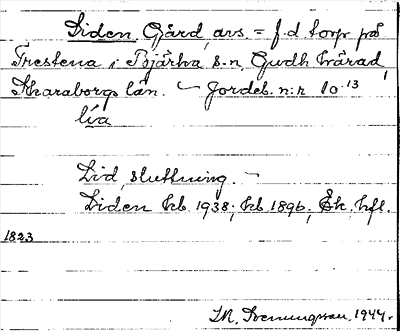 Liden, Gård, avs. = f.d. torp på
Trestena i Bjärka s.n., Gudh. härad,
Skaraborgs län. — Jordeb. n:r 10.13
lia
Lid, sluttning. —
Liden kb. 1938; kb. 1896; Ek, hfl.
1823
M. Svenungsson, 1944.